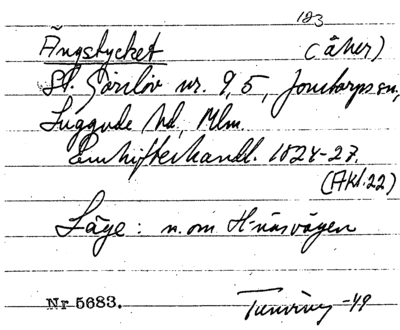 183
Ängstycket (åker)
St. Görslöv nr. 9,5, Jonstorps sn,
Luggude hd, Mlm.
Enskifteshandl. 1824-27.
(Akt.22)
Läge: n. om H-näsvägen
Nr 5683. Tuneving -49